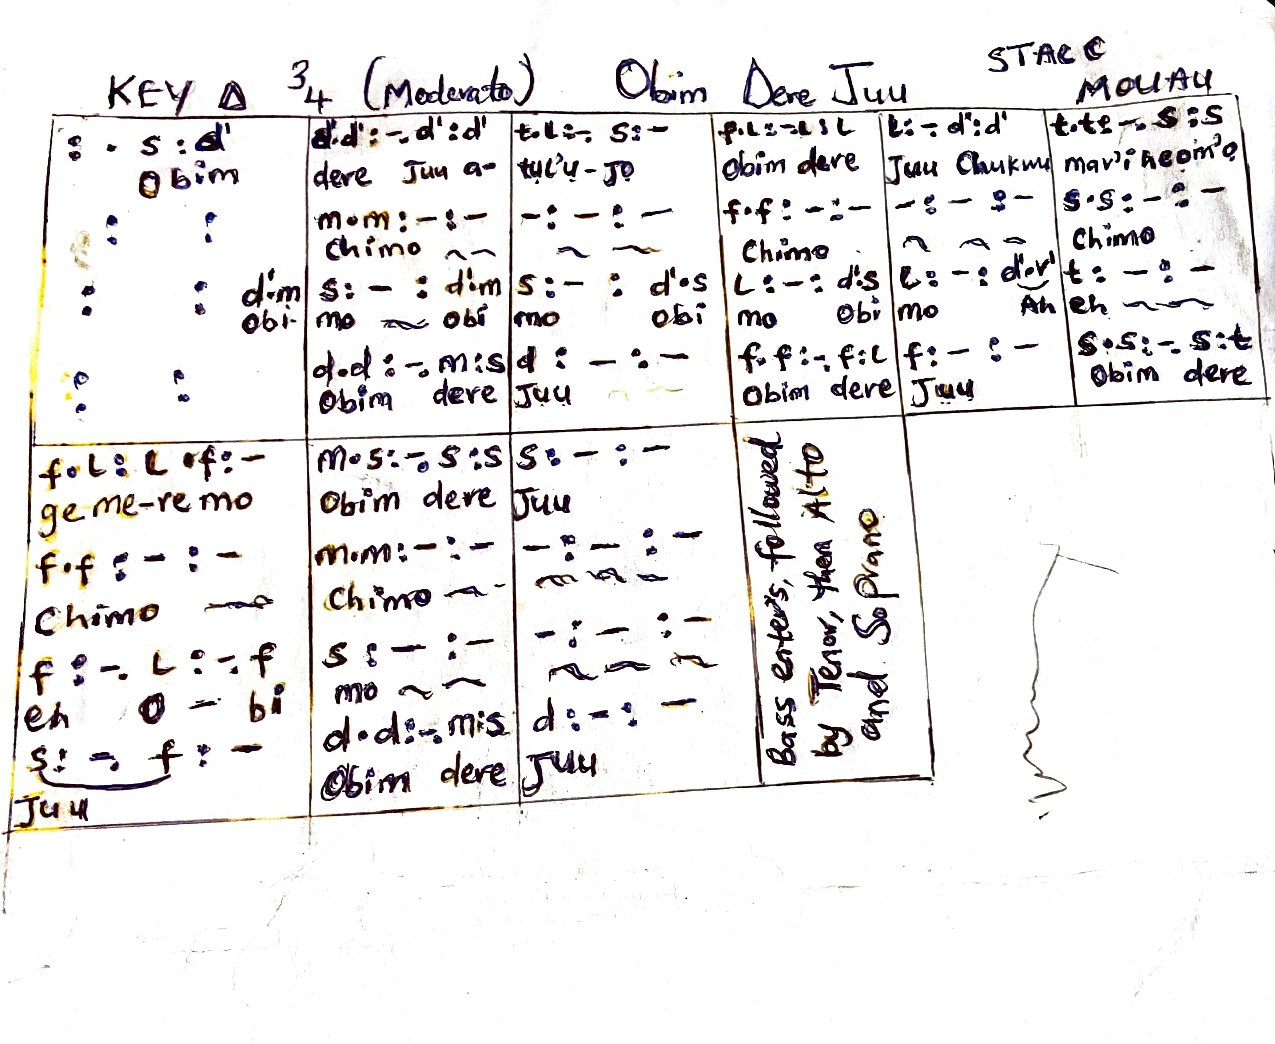 KEY D 3/4 (Moderato) Obim Dere Juu STACC
MOUAU
: . s : d' | d'.d' : -. d' : d' | t.l : -. s : - | f.l : -. l : l | l : - d' : d' | t.t : -. s : s
Obim | dere Juu a- | tụl'ụ-jọ | Obim dere | Juu Chukwu
: : | m.m : - : - | - : - : - | f.f : - : - | - : - : - | s.s : - : -
Chimo | ~ ~ | Chimo | ~ ~ ~ | Chimo
: : d'.m | s : - : d'.m | s : - : d'.s | l : - : d'.s | l : - : d'.r' | t : - : -
Obi- | mo ~ Obi | mo Obi | mo Obi | mo Ah | eh ~ ~
: : | d.d : -. m : s | d : - : - | f.f : -. f : l | f : - : - | s.s : -. s : t
Obim dere | Juu ~ ~ | Obim dere | Juu | Obim dere
f.l : l .f : - | m.s : -. s : s | s : - : -
geme-re mo | Obim dere | Juu
f.f : - : - | m.m : - : - | - : - : -
Chimo ~ | Chimo ~ | ~ ~ ~
f : -. l : -. f | s : - : - | - : - : -
eh O - bi | mo ~ ~ | ~ ~ ~
s : -. f : - | d.d : -. m : s | d : - : -
Juu | Obim dere | Juu
Bass enters, followed
by Tenor, then Alto
and Soprano